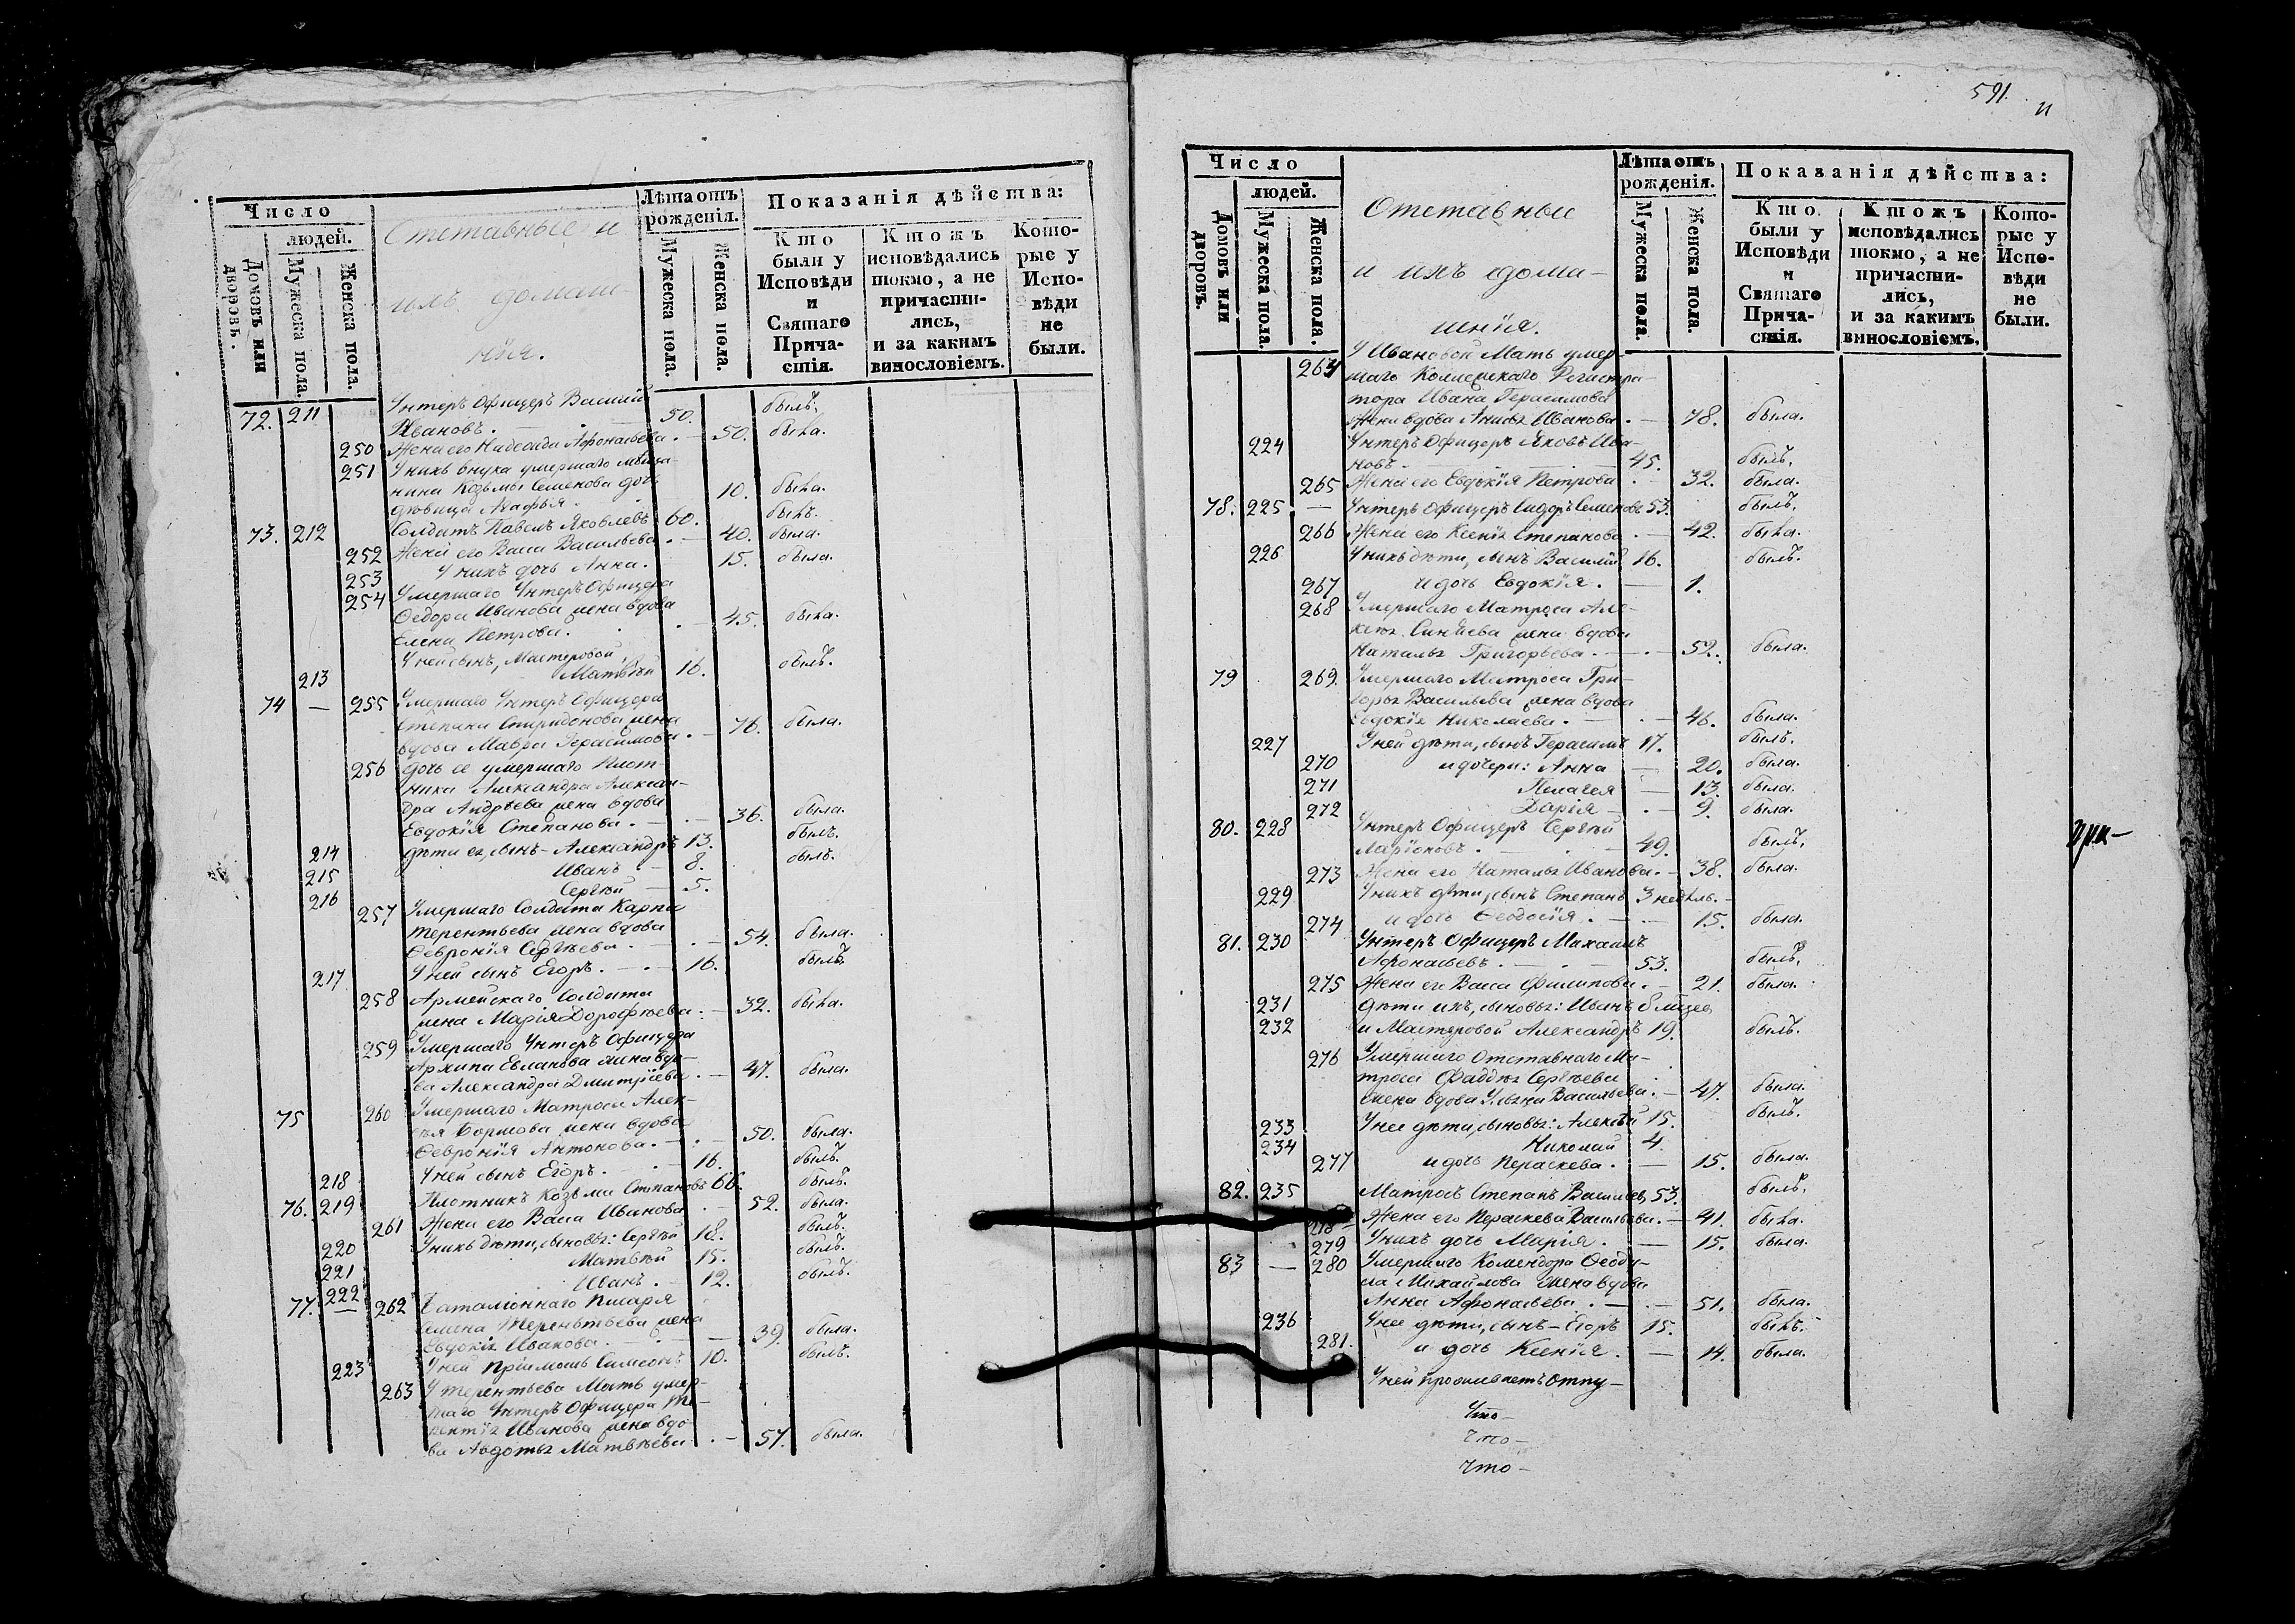 Число
людей.
Домовъ или дворовъ.
Мужеска пола.
Женска пола.
Отставные и
ихъ домаш-
нія.
Лѣта отъ рожденія.
Мужеска пола.
Женска пола.
Показанія дѣйства:
Кто были у Исповѣди и Святаго Прича-стія.
Ктожъ исповѣдались токмо, а не причасти-лись, и за какимъ винословіемъ.
Кото-рые у Испо-вѣди не были.
72. 211 Унтеръ Офицеръ Василий
Ивановъ. — 50. былъ.
250 Жена его Надежда Афонасьева. — 50. была.
251 У нихъ внука умершаго мѣща-
нина Козьмы Семенова дочь
дѣвица Агафья. 10. была.
73. 212 Солдатъ Павелъ Яковлевъ 60. былъ.
252 Жена его Васа Васильева. — 40. была.
253 У нихъ дочь Анна. 15. была.
254 Умершаго Унтеръ Офицера
Федора Иванова жена вдова
Елена Петрова. — 45. была.
У ней сынъ, Мастеровой
213 Матвѣй 16. былъ.
74 — 255 Умершаго Унтеръ Офицера
Степана Спиридонова жена
вдова Мавра Герасимова. — 76. была.
256 дочь ее умершаго Плот-
ника Александра Алексан-
дра Андрѣева жена вдова
Евдокія Степанова. — 36. была.
214 дѣти ея, сынъ - Александръ 13. былъ.
215 Иванъ — 8. былъ.
216 Сергѣй — 5.
257 Умершаго Солдата Карпа
Терентьева жена вдова
Февронія Сергѣева. — 54. была.
217 У ней сынъ Егоръ. — 16. былъ.
258 Армейскаго Солдата
жена Марія Дорофѣева. — 32. была.
259 Умершаго Унтеръ Офицера
Архипа Евланова жена вдо-
ва Александра Дмитріева. — 47. была.
75 260 Умершаго Матроса Алек-
сѣя жена вдова
Февронія Антонова. — 50. была.
218 У ней сынъ Егоръ. — 16. былъ.
76. 219 Плотникъ Козьма Степановъ 66. былъ.
261 Жена его Васа Иванова — 52. была.
220 У нихъ дѣти, сыновья: Сергѣй 18. былъ.
221 Матвѣй 15. былъ.
222 Иванъ. — 12. былъ.
77. — 262 Баталіоннаго Писаря
Семена Терентьева жена
Евдокія Иванова. — 39. была.
223 У ней Пріимышъ Симеонъ 10. былъ.
263 У Терентьева Мать умер-
шаго Унтеръ Офицера Те-
рентія Иванова жена вдо-
ва Авдотья Матвѣева. — 57. была.
591.
Число
людей.
Домовъ или дворовъ.
Мужеска пола.
Женска пола.
Отставные
и ихъ дома-
шнія.
Лѣта отъ рожденія.
Мужеска пола.
Женска пола.
Показанія дѣйства:
Кто были у Исповѣди и Святаго Прича-стія.
Ктожъ исповѣдались токмо, а не причасти-лись, и за какимъ винословіемъ.
Кото-рые у Испо-вѣди не были.
264 У Ивановой Мать умер-
шаго Колежскаго Регистра-
тора Ивана Герасимова
жена вдова Анисья Иванова. — 78. была.
224 Унтеръ Офицеръ Яковъ Ива-
новъ. — 45. былъ.
265 Жена его Евдокія Петрова. — 32. была.
78. 225 — Унтеръ Офицеръ Сидоръ Семеновъ 53. былъ.
266 Жена его Ксенія Степанова. — 42. была.
226 У нихъ дѣти, сынъ Василий 16. былъ.
267 и дочь Евдокія. — 1.
268 Умершаго Матроса Але-
ксѣя жена вдова
Наталья Григорьева. — 52. была.
79 269. Умершаго Матроса Гри-
горья Васильева жена вдова
Евдокія Николаева. — 46. была.
227 У ней дѣти, сынъ Герасимъ 17. былъ.
270 и дочери: Анна — 20. была.
271 Пелагея — 13. была.
272 Дарія — 9. была.
80. 228 Унтеръ Офицеръ Сергѣй
Ларіоновъ. — 49. былъ.
при-
273 Жена его Наталья Иванова. — 38. была.
229 У нихъ дѣти, сынъ Степанъ 3 недѣль. —
274 и дочь Феодосія. — 15. была.
81. 230 Унтеръ Офицеръ Михаилъ
Афонасьевъ. — 53. былъ.
275 Жена его Васа Филипова. — 21. была.
231 Дѣти ихъ, сыновья: Иванъ 8 мѣсяц.
232 и Мастеровой Александръ 19. былъ.
276 Умершаго Отставнаго Ма-
троса Фаддѣя Сергѣева
жена вдова Ульяна Васильева. — 47. была.
233 У нее дѣти, сыновья: Алексѣй 15. былъ.
234 Николай 4.
277 и дочь Параскева. — 15. была.
82. 235 Матросъ Степанъ Васильев, 53. былъ.
278 Жена его Параскева Васильева. — 41. была.
279 У нихъ дочь Марія. — 15. была.
83 — 280 Умершаго Комендора Феоду-
ла Михайлова жена вдова
Анна Афонасьева. — 51. была.
236 У нее дѣти, сынъ - Егоръ 15. былъ.
281. и дочь Ксенія. — 14. была.
У ней проживаетъ Отпу-
Что-
что-
что-